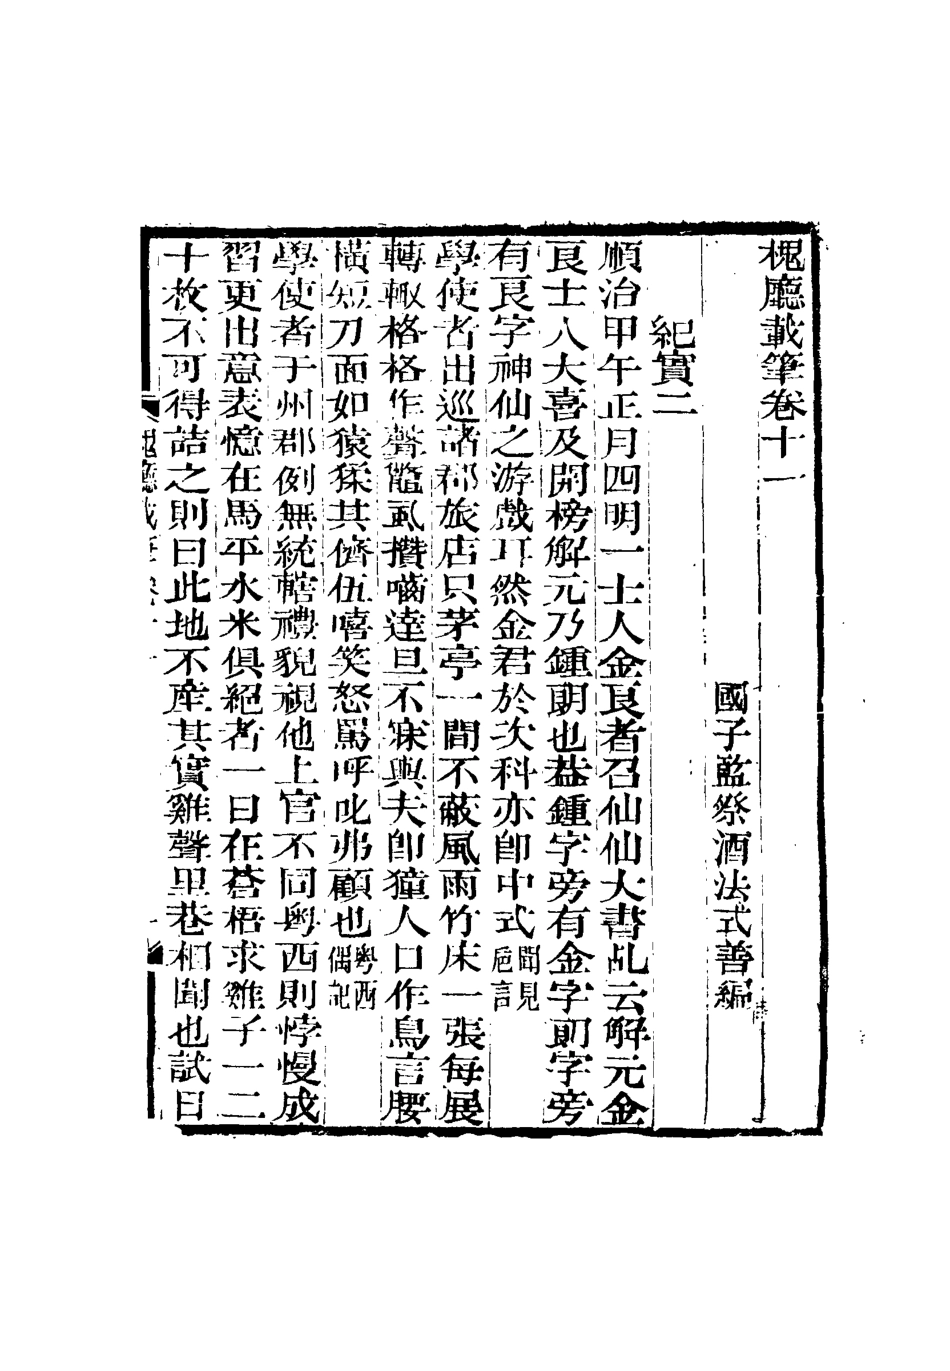 槐廳載筆卷十一
國子監祭酒法式善編
紀實二
順治甲午正月四明一士人金良者召仙仙大書乩云解元金
良士人大喜及開榜解元乃鍾朗也葢鍾字旁有金字朗字旁
有良字神仙之游戲耳然金君於次科亦卽中式聞見巵言
學使者出巡諸郡旅店只茅亭一間不蔽風雨竹床一張每展
轉輙格格作聲蝨攢嚙達旦不寐輿夫卽獞人口作鳥言腰
橫短刀面如猿猱其儕伍嘻笑怒罵呼叱弗顧也粵西偶記
學使者于州郡例無統轄禮貌視他上官不同粵西則悖慢成
習更出意表憶在馬平水米俱絕者一日在蒼梧求雞子一二
十枚不可得詰之則曰此地不產其實雞聲里巷相聞也試日
槐廳載筆卷十一